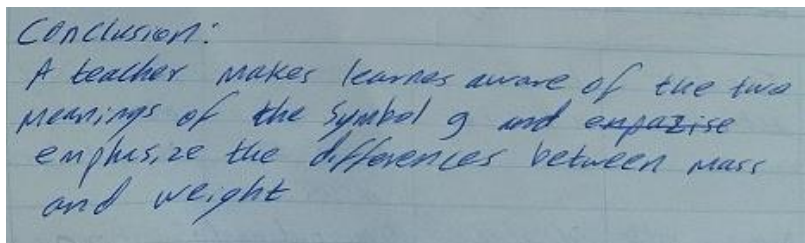 Conclusion:
A teacher makes learnes aware of the two
meanings of the symbol g and enpazise
emphasize the differences between mass
and weight